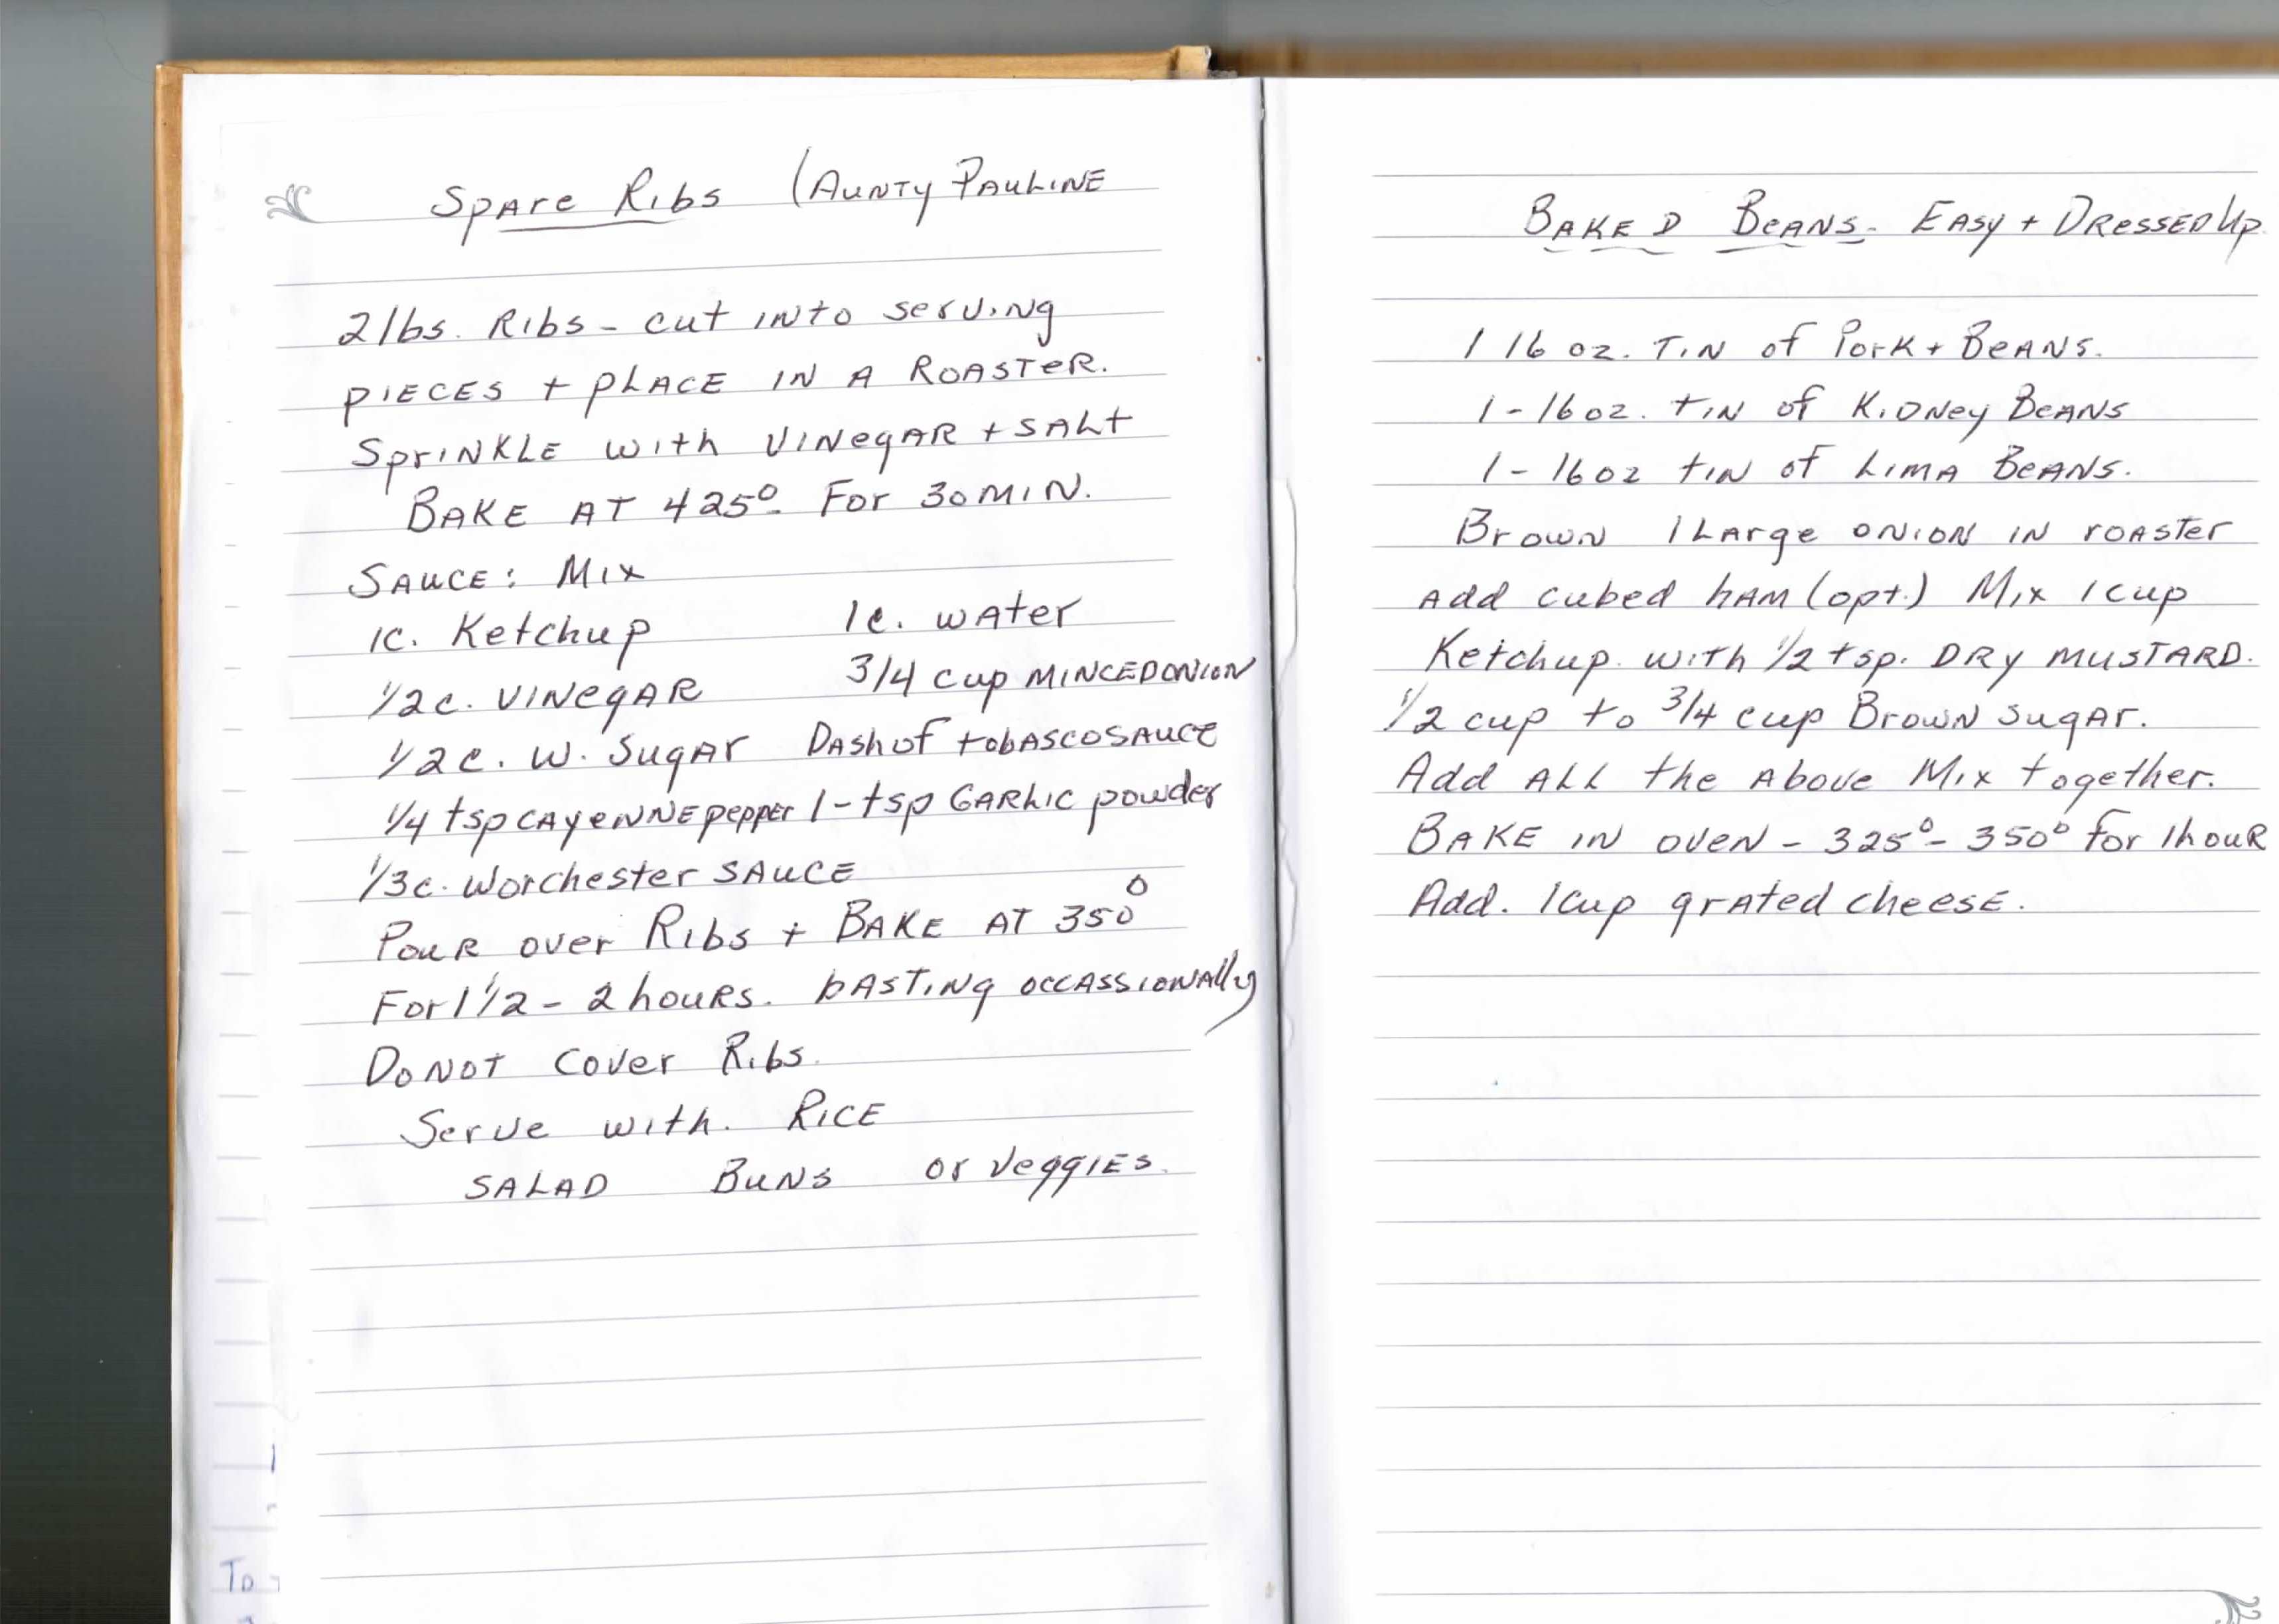 Spare Ribs (Aunty Pauline
2 lbs. Ribs - cut into serving
pieces + place in a roaster.
Sprinkle with vinegar + salt
Bake at 425° for 30 min.
Sauce: Mix
1c. Ketchup 1c. water
1/2 c. vinegar 3/4 cup minced onion
1/2 c. w. sugar Dash of tobasco sauce
1/4 tsp cayenne pepper 1 - tsp garlic powder
1/3 c. Worchester sauce
Pour over Ribs + Bake at 350°
For 1 1/2 - 2 hours. basting occassionally
Do not cover Ribs.
Serve with. Rice
salad Buns or veggies.
To
Baked Beans - Easy + Dressed Up
1 16 oz. tin of Pork + Beans.
1 - 16 oz. tin of Kidney Beans
1 - 16 oz tin of Lima Beans.
Brown 1 Large onion in roaster
Add cubed ham (opt.) Mix 1 cup
Ketchup with 1/2 tsp. Dry mustard.
1/2 cup to 3/4 cup Brown sugar.
Add all the above Mix together.
Bake in oven - 325° - 350° for 1 hour
Add. 1 cup grated cheese.